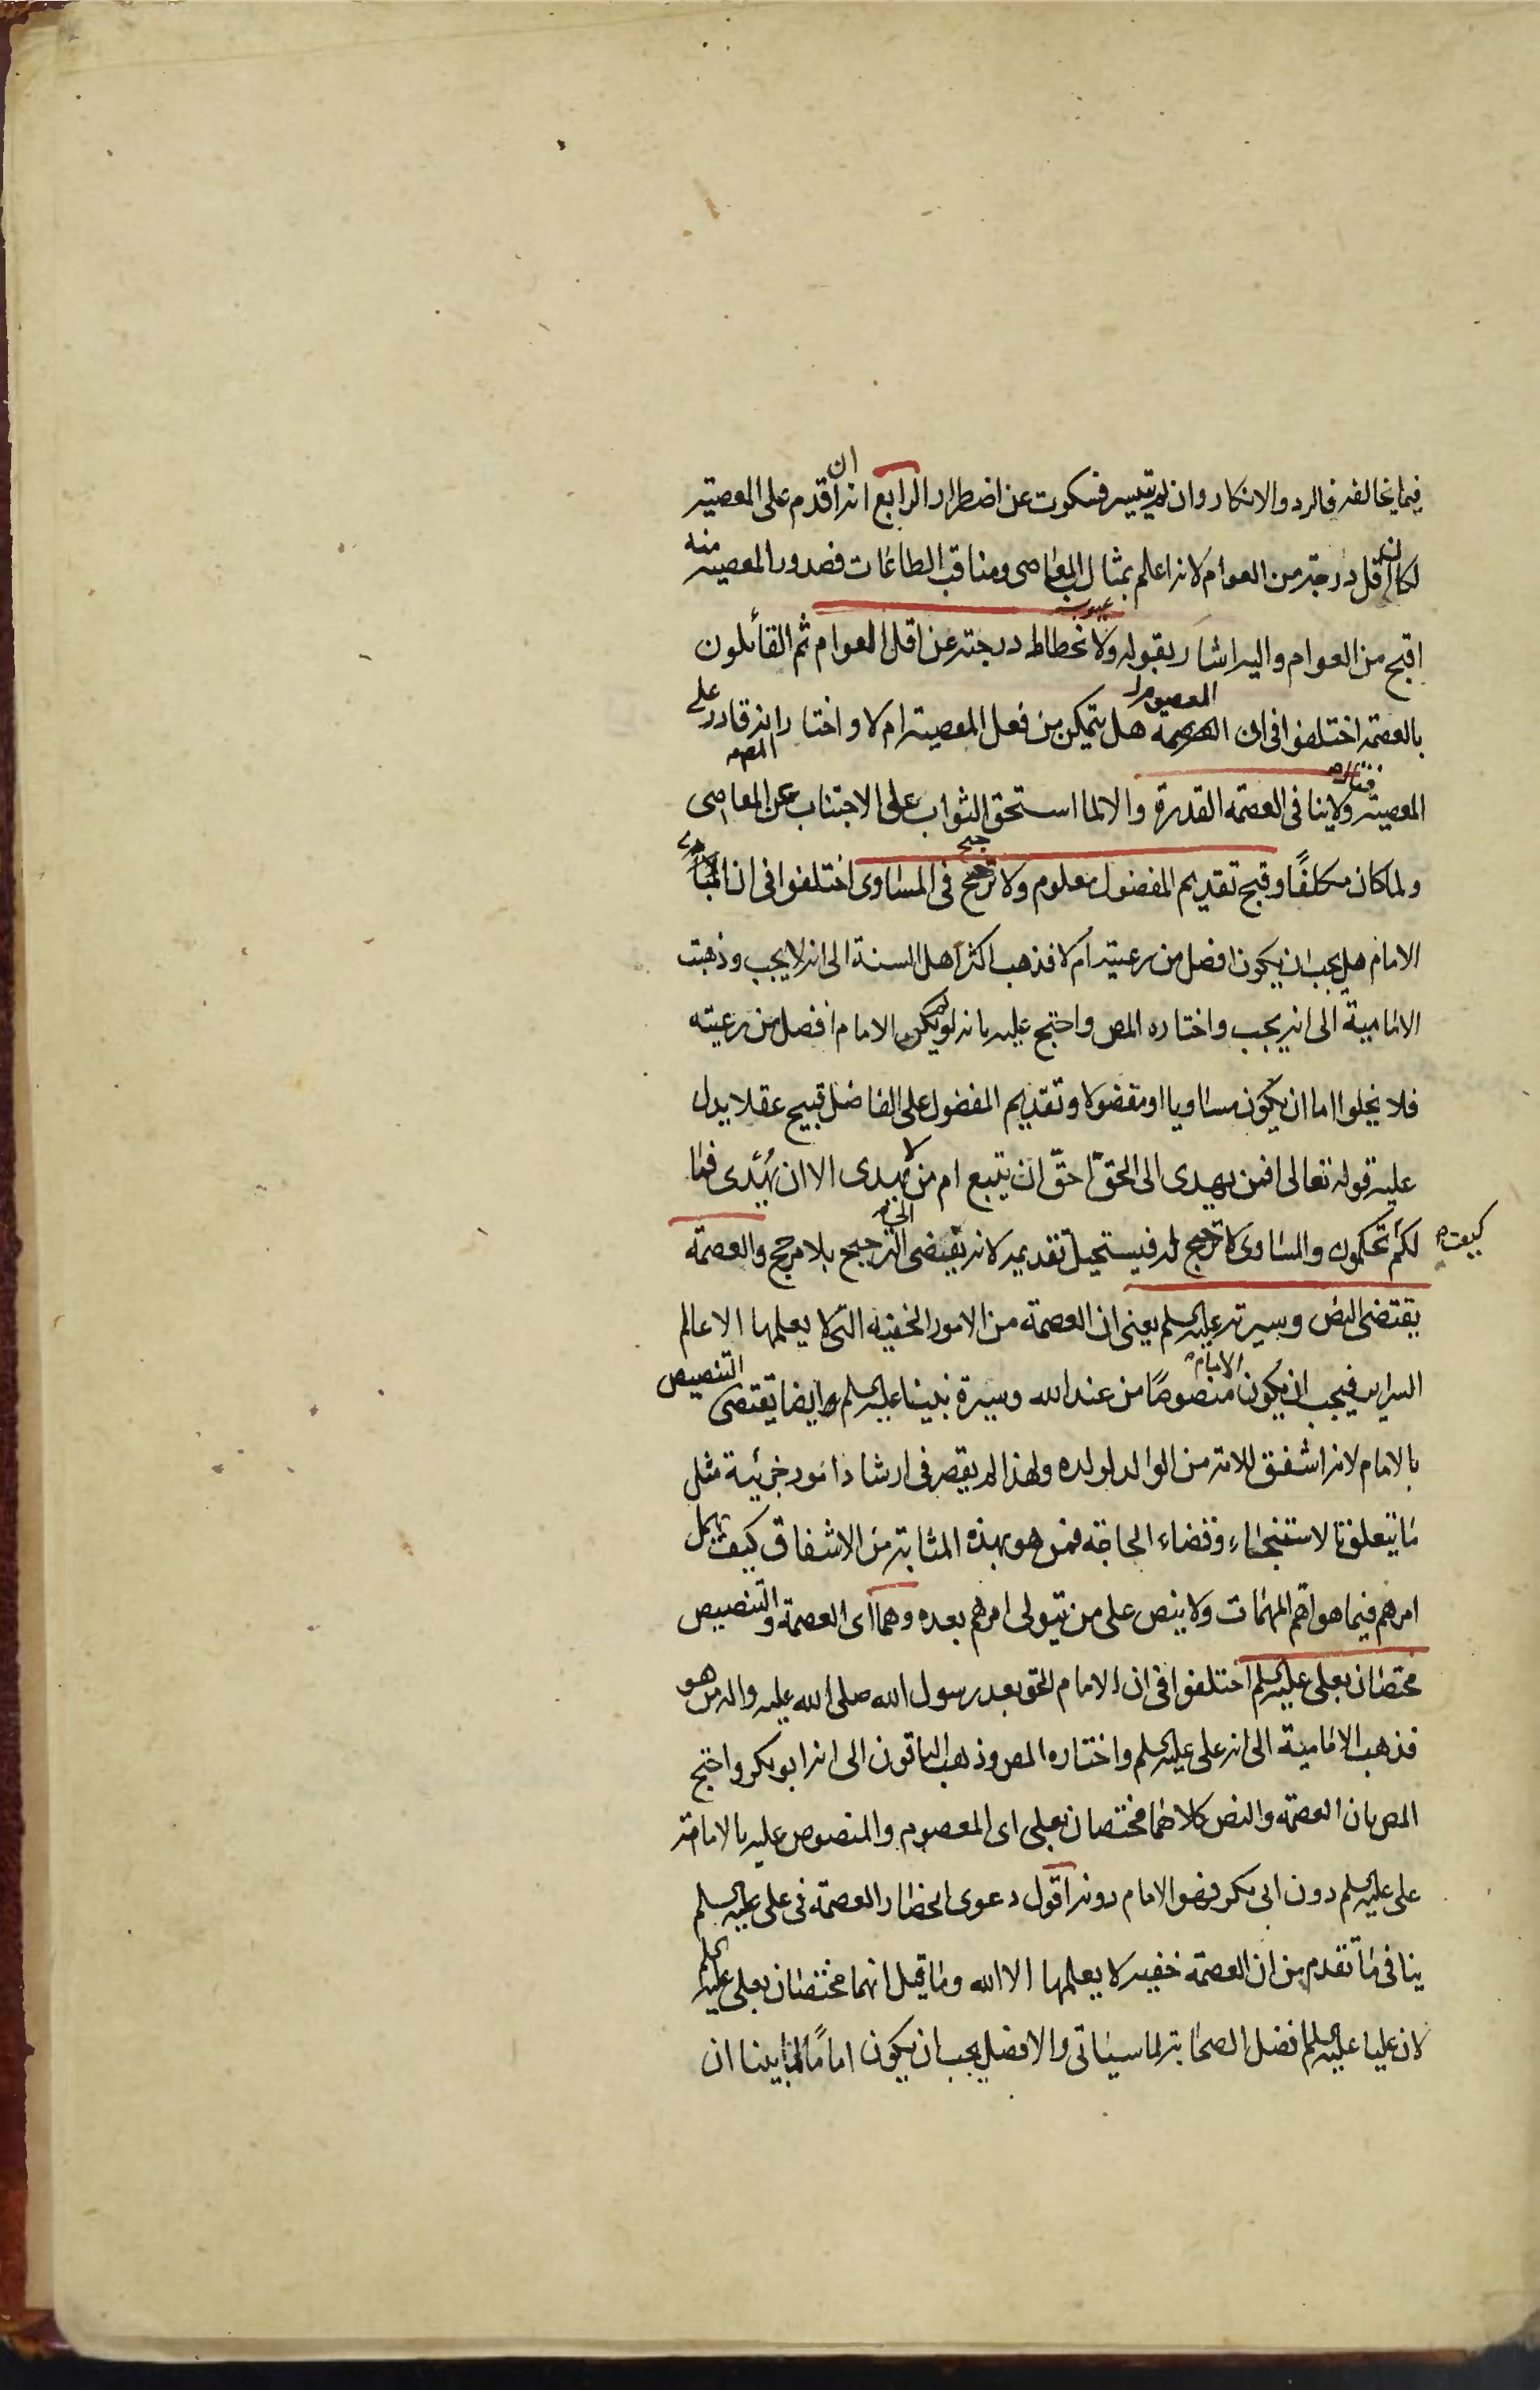 فيما يخالفه فالرد والانكار وان لم يتيسر فسكوت عن اضطرار الرابع انه ان اقدم على المعصية
لكان اقل درجة من العوام لانه اعلم بمثالب المعاصى ومناقب الطاعات فصدور المعصية منه
اقبح من العوام واليه اشار بقوله ولانحطاط درجته عن اقل العوام ثم القائلون
بالعصمة اختلفوا فى ان المعصوم هل يتمكن من فعل المعصية ام لا واختار المص انه قادر على
المعصية فقال ولا ينافى العصمة القدرة والا لما استحق الثواب على الاجتناب عن المعاصى
ولما كان مكلفًا وقبح تقديم المفضول معلوم ولا ترجيح فى المساوى اختلفوا فى ان
الامام هل يجب ان يكون افضل من رعيته ام لا فذهب اكثر اهل السنة الى انه لا يجب وذهبت
الامامية الى انه يجب واختاره المص واحتج عليه بانه لو لم يكن الامام افضل من رعيته
فلا يخلوا اما ان يكون مساويا او مفضولا وتقديم المفضول على الفاضل قبيح عقلا يدل
عليه قوله تعالى افمن يهدى الى الحقّ احقّ ان يتبع ام من لا يهدى الا ان يُهْدى فما
لكم كيف تحكمون والمساوى لا ترجيح له فيستحيل تقديمه لانه يقتضى الترجيح بلا مرجح والعصمة
يقتضى النص وسيرته عليه السلم يعنى ان العصمة من الامور الخفية التى لا يعلمها الا عالم
السراير فيجب ان يكون الامام منصوصًا من عند الله وسيرة نبينا عليه السلم ايضا يقتضى التنصيص
بالامام لانه اشفق للامة من الوالد لولده ولهذا لم يقصر فى ارشاد امور جزئية مثل
ما يتعلق بالاستنجاء وقضاء الحاجة فمن هو بهذه المثابة من الاشفاق كيف يهمل
امرهم فيما هو اهم المهمات ولا ينص على من يتولى امرهم بعده وهما اى العصمة والتنصيص
مختصان بعلى عليه السلم اختلفوا فى ان الامام الحق بعد رسول الله صلى الله عليه واله من هو
فذهب الامامية الى انه على عليه السلم واختاره المص وذهب الباقون الى انه ابو بكر واحتج
المص بان العصمة والنص كلاهما مختصان بعلى اى المعصوم والمنصوص عليه بالامامة
على عليه السلم دون ابى بكر فهو الامام دونه اقول دعوى انحصار العصمة فى على عليه السلم
ينافى ما تقدم من ان العصمة خفية لا يعلمها الا الله وما قيل انهما مختصان بعلى عليه السلم
لان عليا عليه السلم افضل الصحابة لما سيأتى والافضل يجب ان يكون امامًا لما بينا ان